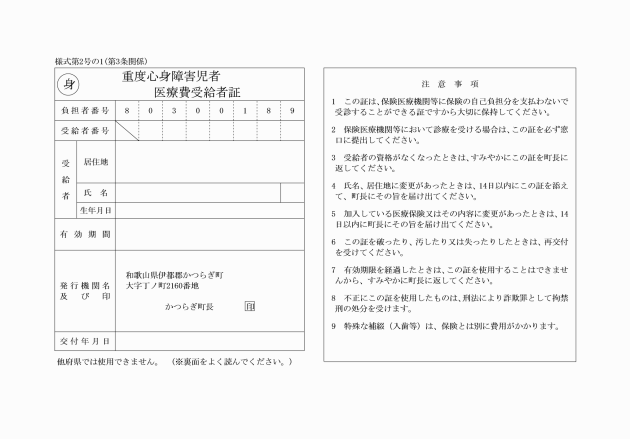 様式第2号の1(第3条関係)
身
重度心身障害児者
医療費受給者証
負担者番号 8 0 3 0 0 1 8 9
受給者番号
受給者
居住地
氏名
生年月日
有効期間
発行機関名
及び印
和歌山県伊都郡かつらぎ町
大字丁ノ町2160番地
かつらぎ町長 印
交付年月日
他府県では使用できません。 (※裏面をよく読んでください。)
注意事項
1 この証は、保険医療機関等に保険の自己負担分を支払わないで
受診することができる証ですから大切に保持してください。
2 保険医療機関等において診療を受ける場合は、この証を必ず窓
口に提出してください。
3 受給者の資格がなくなったときは、すみやかにこの証を町長に
返してください。
4 氏名、居住地に変更があったときは、14日以内にこの証を添え
て、町長にその旨を届け出てください。
5 加入している医療保険又はその内容に変更があったときは、14
日以内に町長にその旨を届け出てください。
6 この証を破ったり、汚したり又は失ったりしたときは、再交付
を受けてください。
7 有効期限を経過したときは、この証を使用することはできませ
んから、すみやかに町長に返してください。
8 不正にこの証を使用したものは、刑法により詐欺罪として拘禁
刑の処分を受けます。
9 特殊な補綴(入歯等)は、保険とは別に費用がかかります。